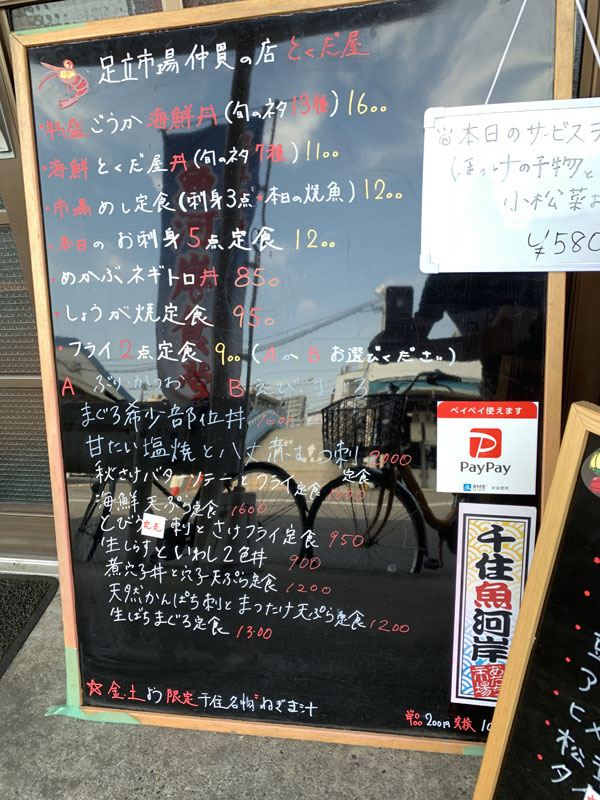 足立市場仲買の店 とくだ屋
・特盛 ごうか 海鮮丼 (旬のネタ13種) 1600
・海鮮 とくだ屋丼 (旬のネタ7種) 1100
・市場めし定食 (刺身3点・本日の焼魚) 1200
・本日の お刺身5点定食 1200
・めかぶネギトロ丼 850
・しょうが焼定食 950
・フライ2点定食 900 (AかB お選びください)
A ぶり・かつお B えび・まぐろ
まぐろ希少部位丼
甘たい塩焼と八丈赤むつ刺定食 2000
秋さけバターソテーとフライ定食
海鮮天ぷら定食 1600
とびうお刺とさけフライ定食 950
完売
生しらすといわし2色丼 900
煮穴子丼と穴子天ぷら定食 1200
天然かんぱち刺とまつたけ天ぷら定食 1200
生ばちまぐろ定食 1300
☆金・土よう限定 千住名物ねぎま汁
200円交換
本日のサービス
(ほっけの干物と
小松菜
¥580
ペイペイ使えます
PayPay
千住魚河岸
あだち市場